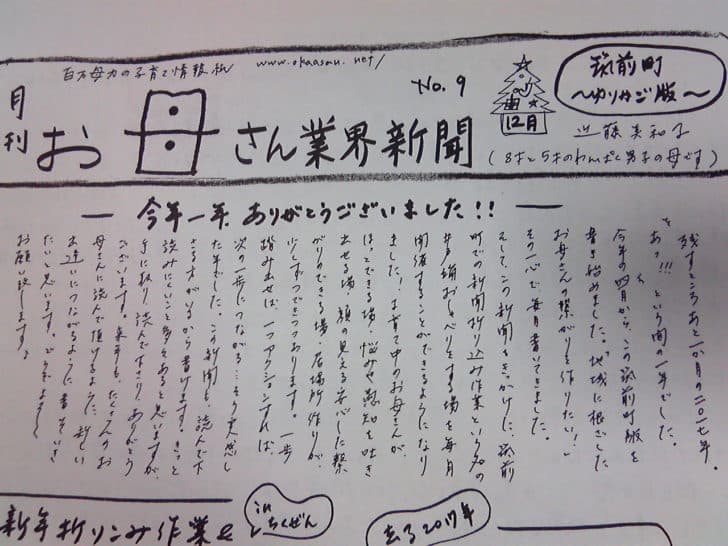 百万母力の子育て情報紙
www.okaasan.net/
月刊
お母さん業界新聞
No.9
12月
筑前町
～ゆりかご版～
近藤美和子
(8才と5才のわんぱく男子の母です)
― 今年一年、ありがとうございました!! ―
残すところあと一か月の二〇一七年。
"あっ!!!"という間の一年でした。
今年の四月から、この筑前町版を
書き始めました。「地域に根ざした
お母さんの繋がりを作りたい!」
その一心で、毎月書いてきました。
そして、この新聞をきっかけに、筑前
町での新聞折り込み作業という名の
井戸端おしゃべりをする場を毎月
開催することができるようになり
ました!子育て中のお母さんが、
ほっとできる場、悩みや愚知を吐き
出せる場、顔の見える安心した繋
がりのできる場、居場所作りが、
少しずつできつつあります。一歩
踏み出せば、一つアクションすれば、
次の一歩につながる…そう実感し
た年でした。この新聞も、読んで下
さる方がいるから書けます。きっと
読みにくいこと多々あると思いますが、
手に取り、読んで下さり、ありがとう
ございます。来年も、たくさんのお
母さんに読んで頂けるように、新しい
出逢いにつながるよう書いていき
たいと思います。どうぞよろしく
お願い致します。
新年折りこみ作業を
in ちくぜん
去る2017年